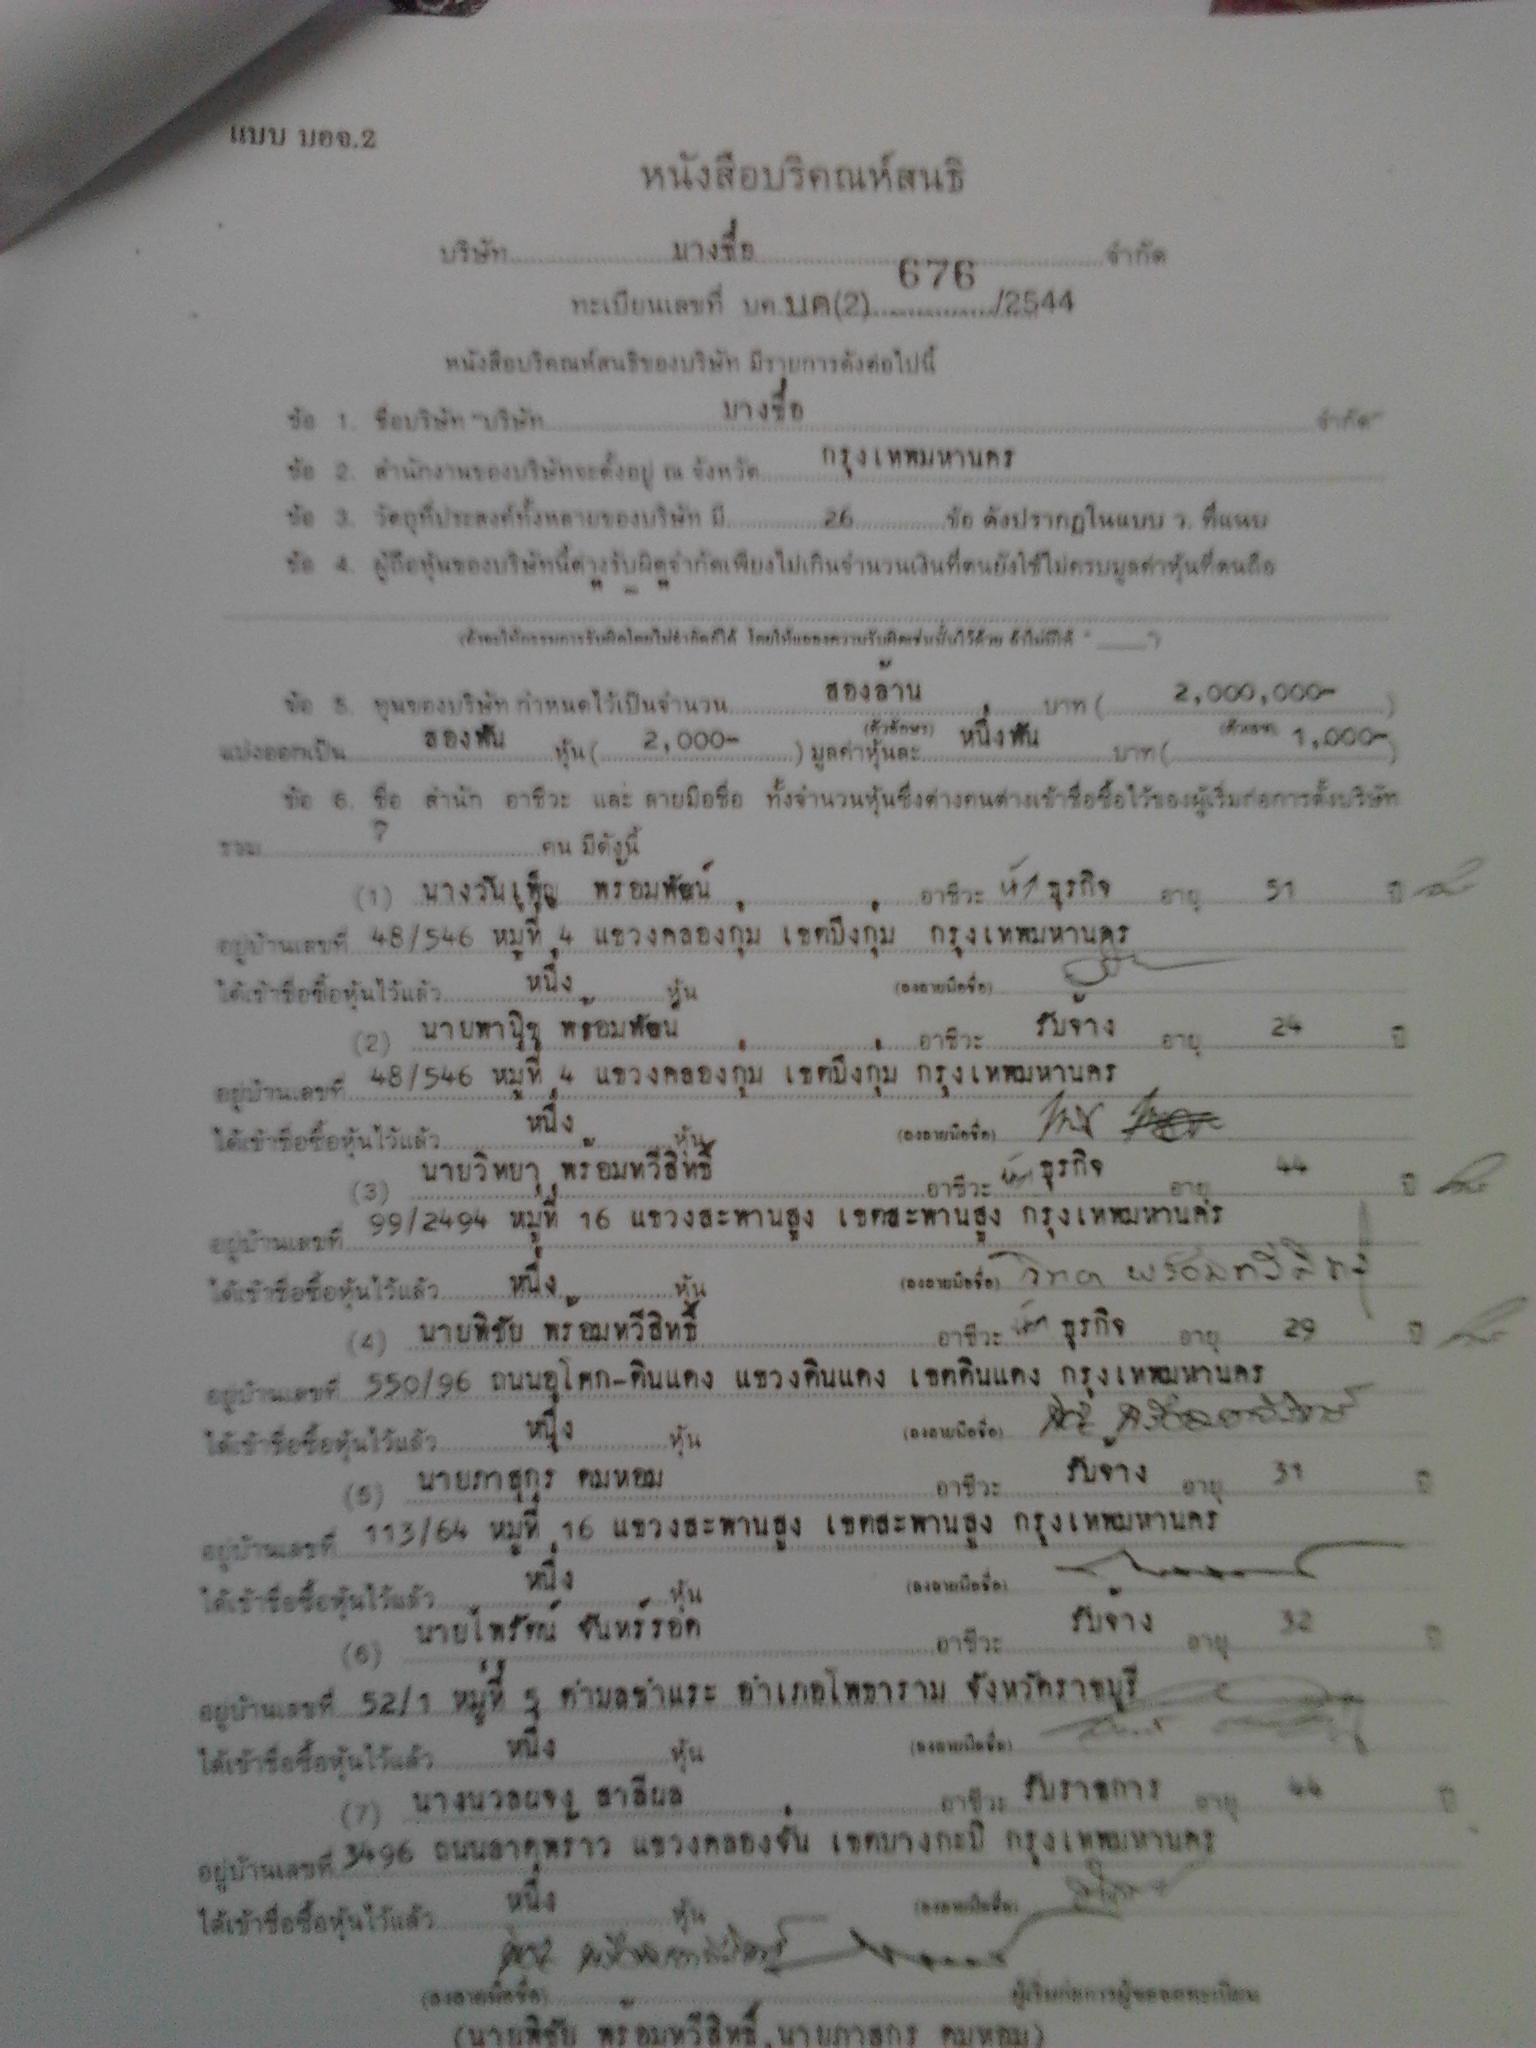 แบบ บอจ.2
หนังสือบริคณห์สนธิ
บริษัท บางซื่อ จำกัด
ทะเบียนเลขที่ บค.บค(2) 676 /2544
หนังสือบริคณห์สนธิของบริษัท มีรายการดังต่อไปนี้
ข้อ 1. ชื่อบริษัท "บริษัท บางซื่อ จำกัด"
ข้อ 2. สำนักงานของบริษัทจะตั้งอยู่ ณ จังหวัด กรุงเทพมหานคร
ข้อ 3. วัตถุที่ประสงค์ทั้งหลายของบริษัท มี 26 ข้อ ดังปรากฏในแบบ ว. ที่แนบ
ข้อ 4. ผู้ถือหุ้นของบริษัทนี้ต่างรับผิดจำกัดเพียงไม่เกินจำนวนเงินที่ตนยังใช้ไม่ครบมูลค่าหุ้นที่ตนถือ
(ถ้าจะให้กรรมการรับผิดโดยไม่จำกัดก็ได้ โดยให้แสดงความรับผิดเช่นนั้นไว้ด้วย ถ้าไม่มีให้ " ")
ข้อ 5. ทุนของบริษัท กำหนดไว้เป็นจำนวน สองล้าน บาท ( 2,000,000- )
(ตัวอักษร) (ตัวเลข)
แบ่งออกเป็น สองพัน หุ้น ( 2,000- ) มูลค่าหุ้นละ หนึ่งพัน บาท ( 1,000- )
ข้อ 6. ชื่อ สำนัก อาชีวะ และ ลายมือชื่อ ทั้งจำนวนหุ้นซึ่งต่างคนต่างเข้าชื่อซื้อไว้ของผู้เริ่มก่อการตั้งบริษัท
รวม 7 คน มีดังนี้
(1) นางวันเพ็ญ พร้อมพัฒน์ อาชีวะ ธุรกิจ อายุ 51 ปี
อยู่บ้านเลขที่ 48/546 หมู่ที่ 4 แขวงคลองกุ่ม เขตบึงกุ่ม กรุงเทพมหานคร
ได้เข้าชื่อซื้อหุ้นไว้แล้ว หนึ่ง หุ้น (ลงลายมือชื่อ)
(2) นายพานิช พร้อมพัฒน์ อาชีวะ รับจ้าง อายุ 24 ปี
อยู่บ้านเลขที่ 48/546 หมู่ที่ 4 แขวงคลองกุ่ม เขตบึงกุ่ม กรุงเทพมหานคร
ได้เข้าชื่อซื้อหุ้นไว้แล้ว หนึ่ง หุ้น (ลงลายมือชื่อ)
(3) นายวิทยา พร้อมทวีสิทธิ์ อาชีวะ ธุรกิจ อายุ 44 ปี
อยู่บ้านเลขที่ 99/2494 หมู่ที่ 16 แขวงสะพานสูง เขตสะพานสูง กรุงเทพมหานคร
ได้เข้าชื่อซื้อหุ้นไว้แล้ว หนึ่ง หุ้น (ลงลายมือชื่อ)
(4) นายพิชัย พร้อมทวีสิทธิ์ อาชีวะ ธุรกิจ อายุ 29 ปี
อยู่บ้านเลขที่ 550/96 ถนนอโศก-ดินแดง แขวงดินแดง เขตดินแดง กรุงเทพมหานคร
ได้เข้าชื่อซื้อหุ้นไว้แล้ว หนึ่ง หุ้น (ลงลายมือชื่อ)
(5) นายภาสกร คมหอม อาชีวะ รับจ้าง อายุ 31 ปี
อยู่บ้านเลขที่ 113/64 หมู่ที่ 16 แขวงสะพานสูง เขตสะพานสูง กรุงเทพมหานคร
ได้เข้าชื่อซื้อหุ้นไว้แล้ว หนึ่ง หุ้น (ลงลายมือชื่อ)
(6) นายไพรัตน์ จันทร์รอด อาชีวะ รับจ้าง อายุ 32 ปี
อยู่บ้านเลขที่ 52/1 หมู่ที่ 5 ตำบลชำแระ อำเภอโพธาราม จังหวัดราชบุรี
ได้เข้าชื่อซื้อหุ้นไว้แล้ว หนึ่ง หุ้น (ลงลายมือชื่อ)
(7) นางนวลผจง สาลีผล อาชีวะ รับราชการ อายุ 44 ปี
อยู่บ้านเลขที่ 3496 ถนนลาดพร้าว แขวงคลองจั่น เขตบางกะปิ กรุงเทพมหานคร
ได้เข้าชื่อซื้อหุ้นไว้แล้ว หนึ่ง หุ้น (ลงลายมือชื่อ)
(ลงลายมือชื่อ) ผู้เริ่มก่อการผู้ขอจดทะเบียน
(นายพิชัย พร้อมทวีสิทธิ์,นายภาสกร คมหอม)